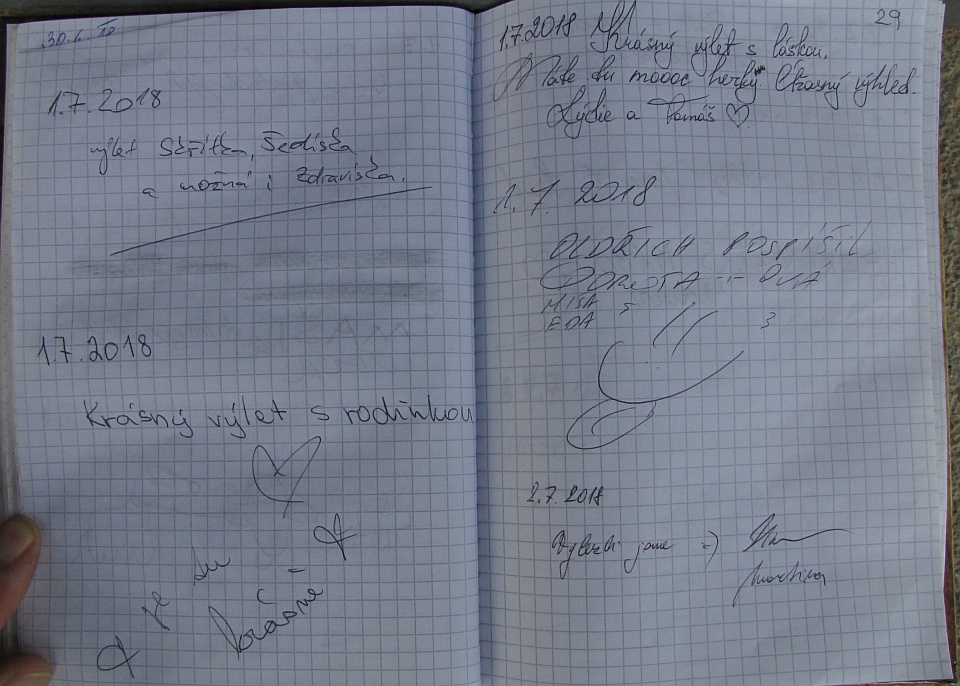 30.6.
1.7.2018
výlet Skřítka, Šedišca
a možná i Zdravíška.
1.7.2018
Krásný výlet s rodinkou
je tu
krásně
29
1.7.2018 Krásný výlet s láskou.
Máte tu moooc hezky. Úžasný výhled.
Lýdie a Tomáš ♡
1.7.2018
OLDŘICH POSPÍŠIL
DOROTA -"- OVÁ
MÍŠA 5
EDA 3
2.7.2018
Vylezli jsme =)
Martina